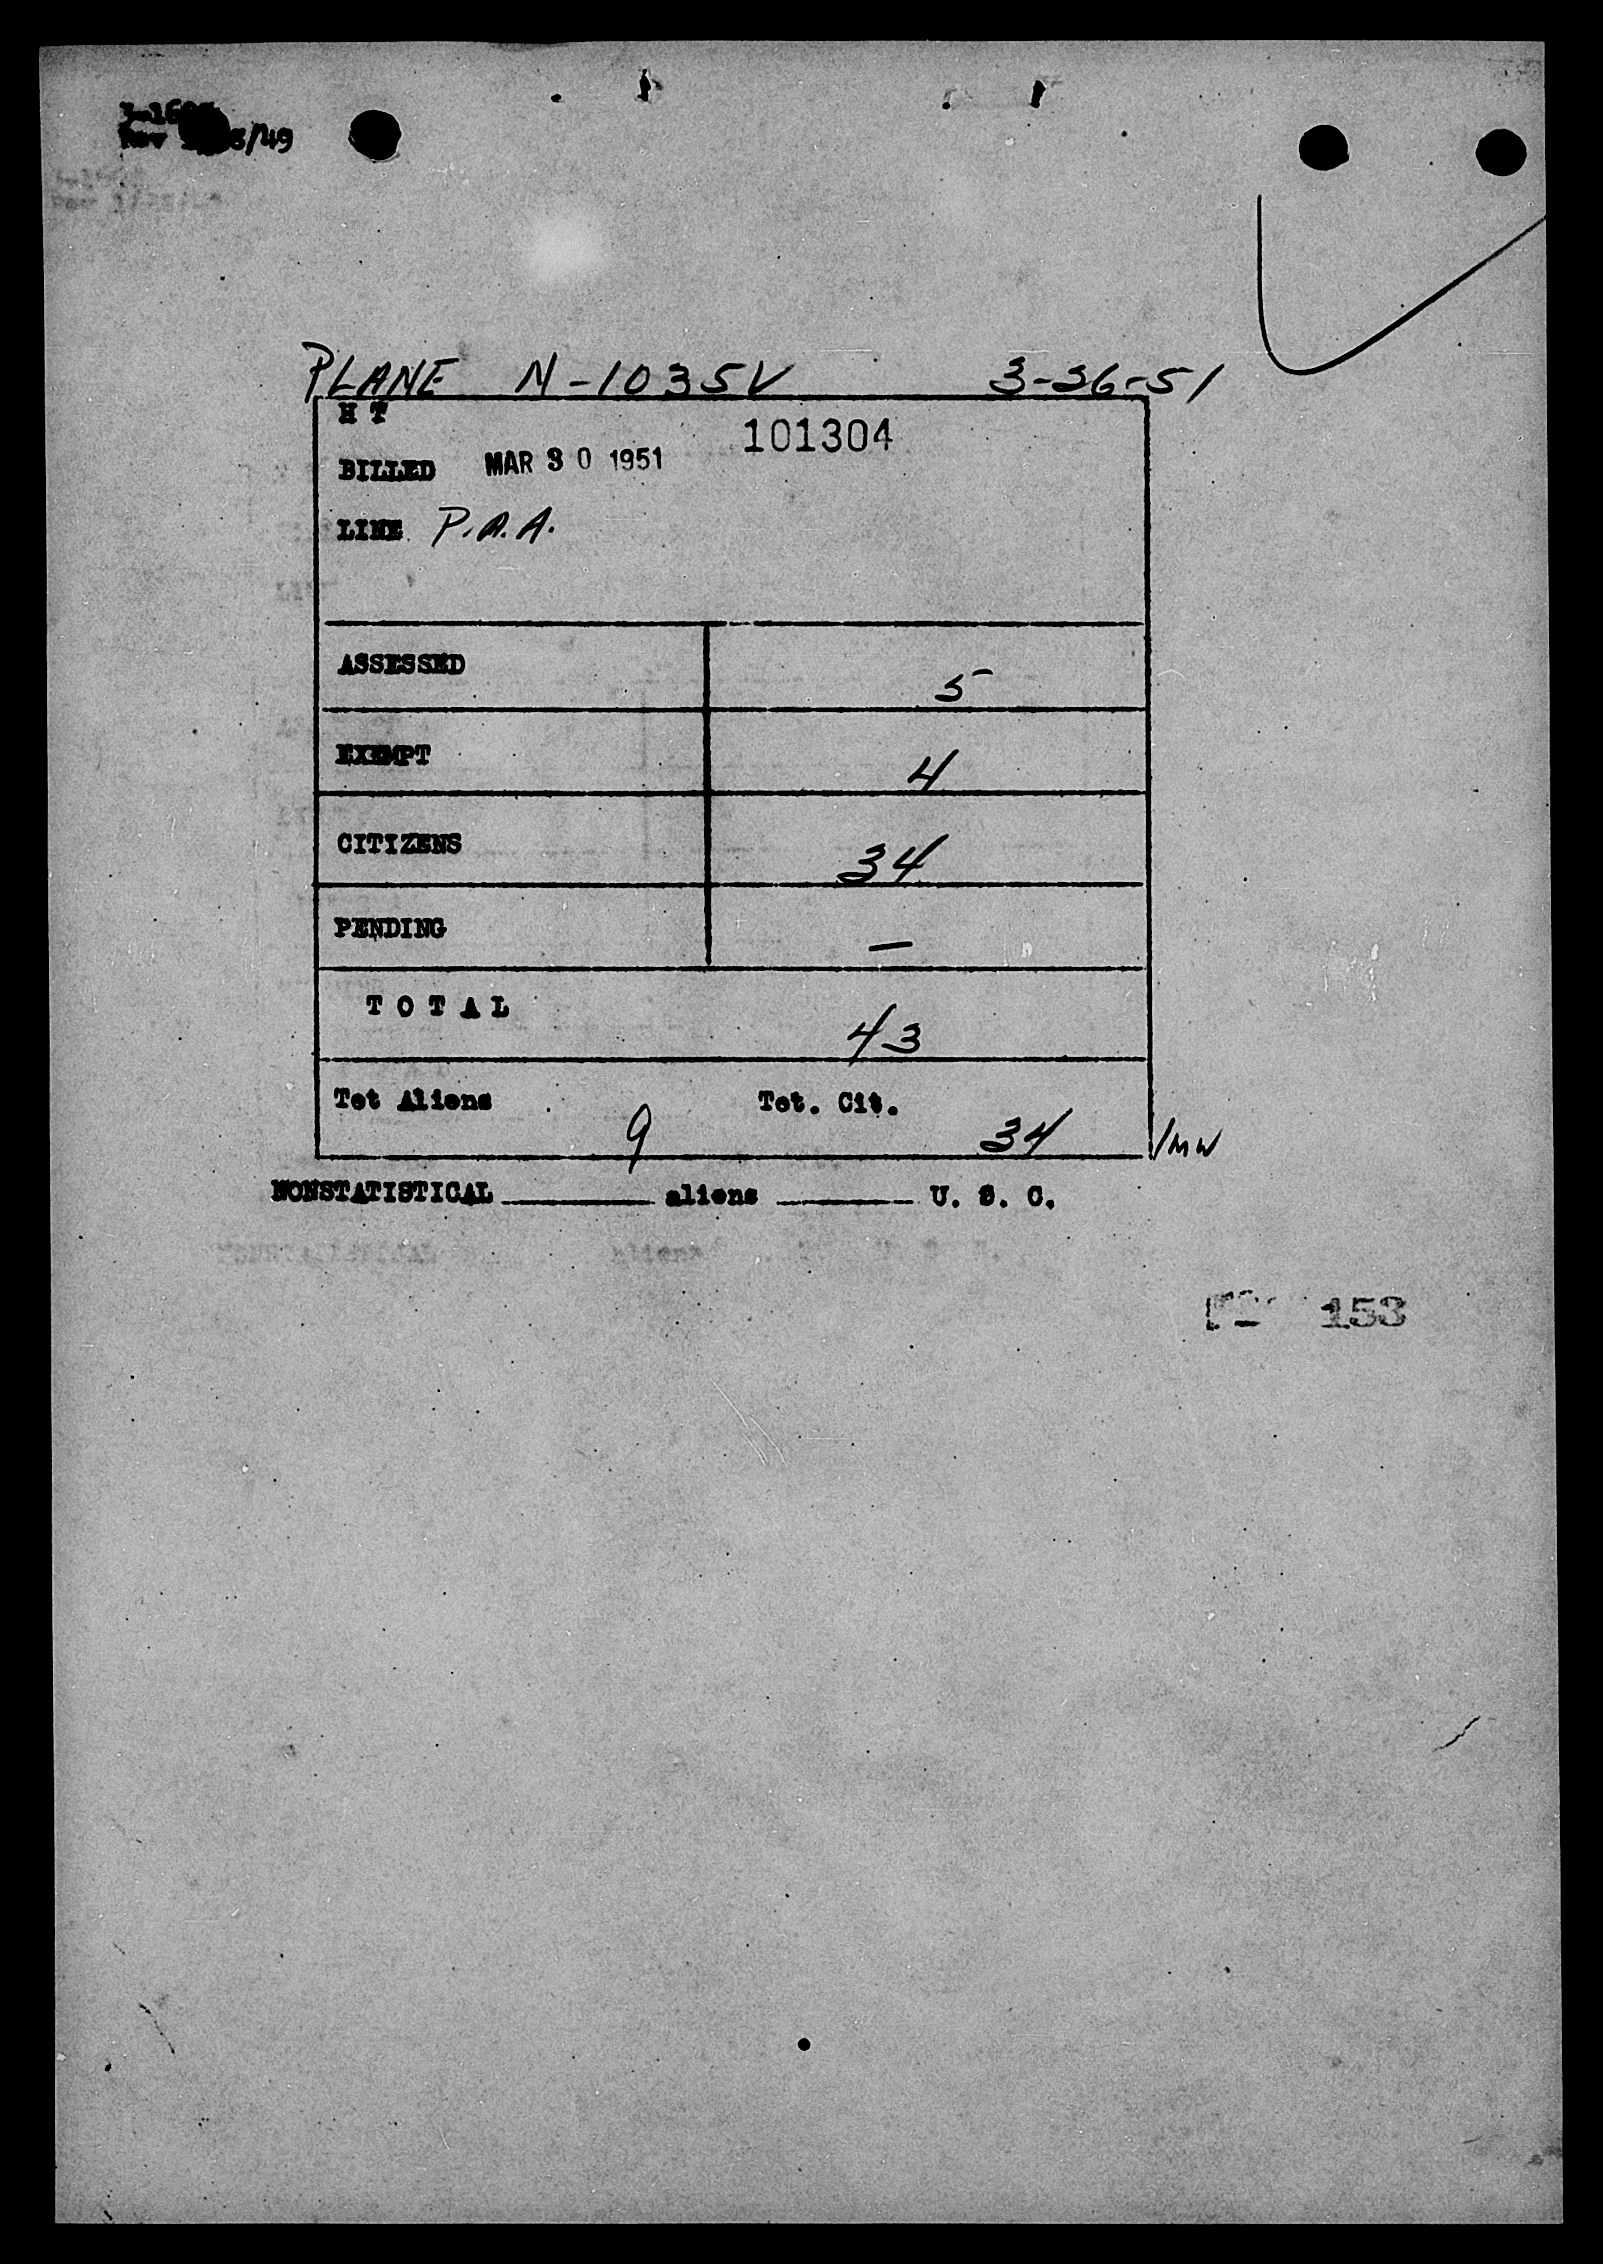 PLANE N-1035V 3-26-51
H T
101304
BILLED MAR 30 1951
LINE P.A.A.
ASSESSED 5
EXEMPT 4
CITIZENS 34
PENDING —
T O T A L 43
Tot Aliens 9 Tot. Cit. 34 /MW
NONSTATISTICAL ________ aliens ________ U. S. C.
153